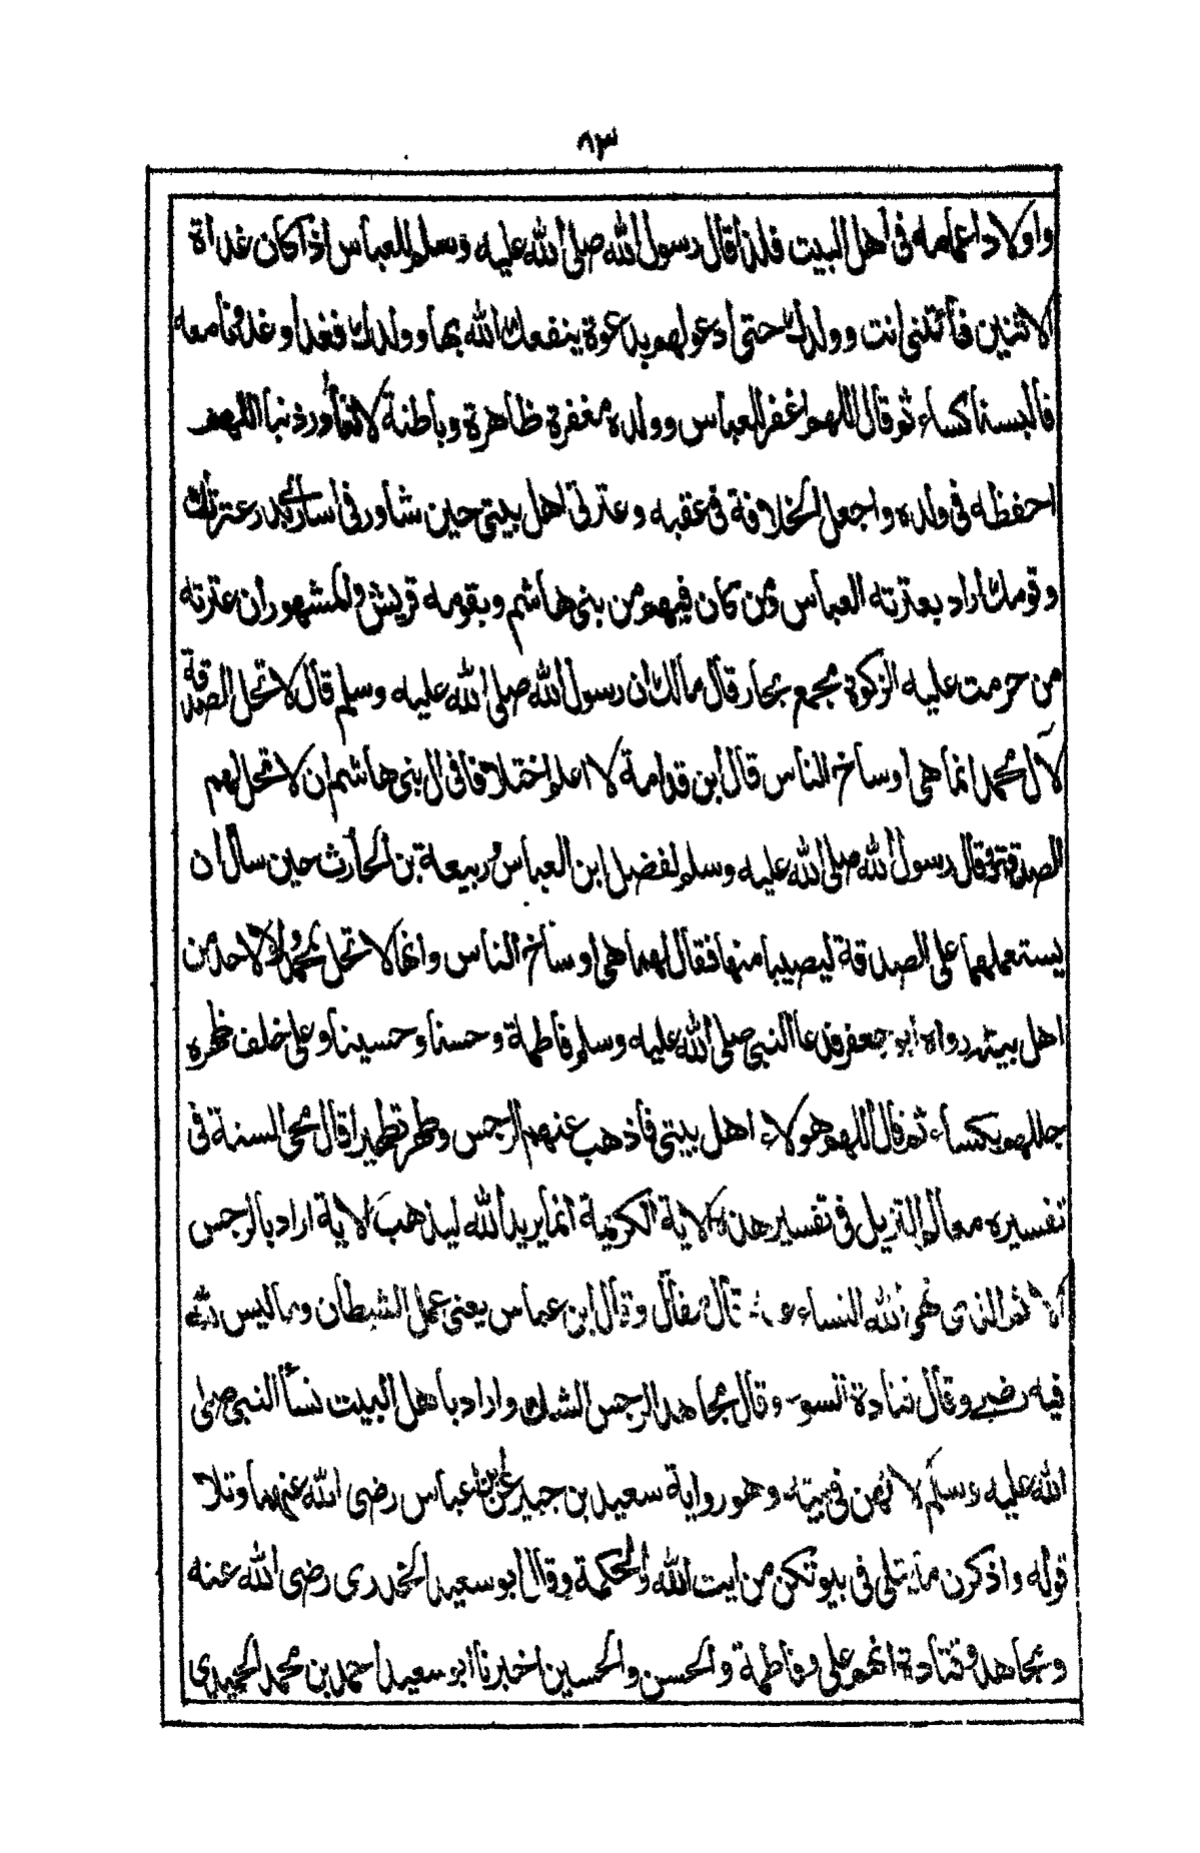 ٨٣
واولاد اعمامه فى اهل البيت فلذا قال رسول الله صلى الله عليه وسلم للعباس اذا كان غداة
الاثنين فأتنى انت وولدك حتى ادعو لهم بدعوة ينفعك الله بها وولدك فغدا وغدونا معه
فالبسنا كساء ثم قال اللهم اغفر للعباس وولده مغفرة ظاهرة وباطنة لا تغادر ذنبا اللهم
احفظه فى ولده واجعل الخلافة فى عقبه وعترتى اهل بيتى حين شاور فى اسارى بدر عترتك
وقومك اراد بعترته العباس ومن كان فيهم من بنى هاشم وبقومه قريش والمشهور ان عترته
من حرمت عليه الزكوة مجمع بحار قال مالك ان رسول الله صلى الله عليه وسلم قال لا تحل الصدقة
لآل محمد انما هى اوساخ الناس قال ابن قدامة لا اعلم اختلافا فى ال بنى هاشم ان لا تحل لهم
الصدقة وقال رسول الله صلى الله عليه وسلم لفضل ابن العباس وربيعة بن الحارث حين سال ان
يستعملهما على الصدقة ليصيبا منها فقال لهما هى اوساخ الناس وانها لا تحل لمحمد ولا لاحد من
اهل بيته رواه ابو جعفر فدعا النبى صلى الله عليه وسلم فاطمة وحسنا وحسينا وعلى خلف ظهره
جللهم بكساء ثم قال اللهم هولاء اهل بيتى فأذهب عنهم الرجس وطهر تطهيرا قال محى السنة فى
تفسيره معالم التنزيل فى تفسير هذه الاية الكريمة انما يريد الله ليذهب الاية اراد بالرجس
الاثم الذى نهى الله النساء عنه قال مقاتل وقال ابن عباس يعنى عمل الشيطان وما ليس لله
فيه رضى وقال قتادة السوء وقال مجاهد الرجس الشك واراد باهل البيت نساء النبى صلى
الله عليه وسلم لانهن فى بيته وهو رواية سعيد بن جبير عن ابن عباس رضى الله عنهما وتلا
قوله واذكرن ما يتلى فى بيوتكن من ايت الله والحكمة وقال ابو سعيد الخدرى رضى الله عنه
ومجاهد وقتادة انهم على وفاطمة والحسن والحسين اخبرنا ابو سعيد احمد بن محمد الحميدى